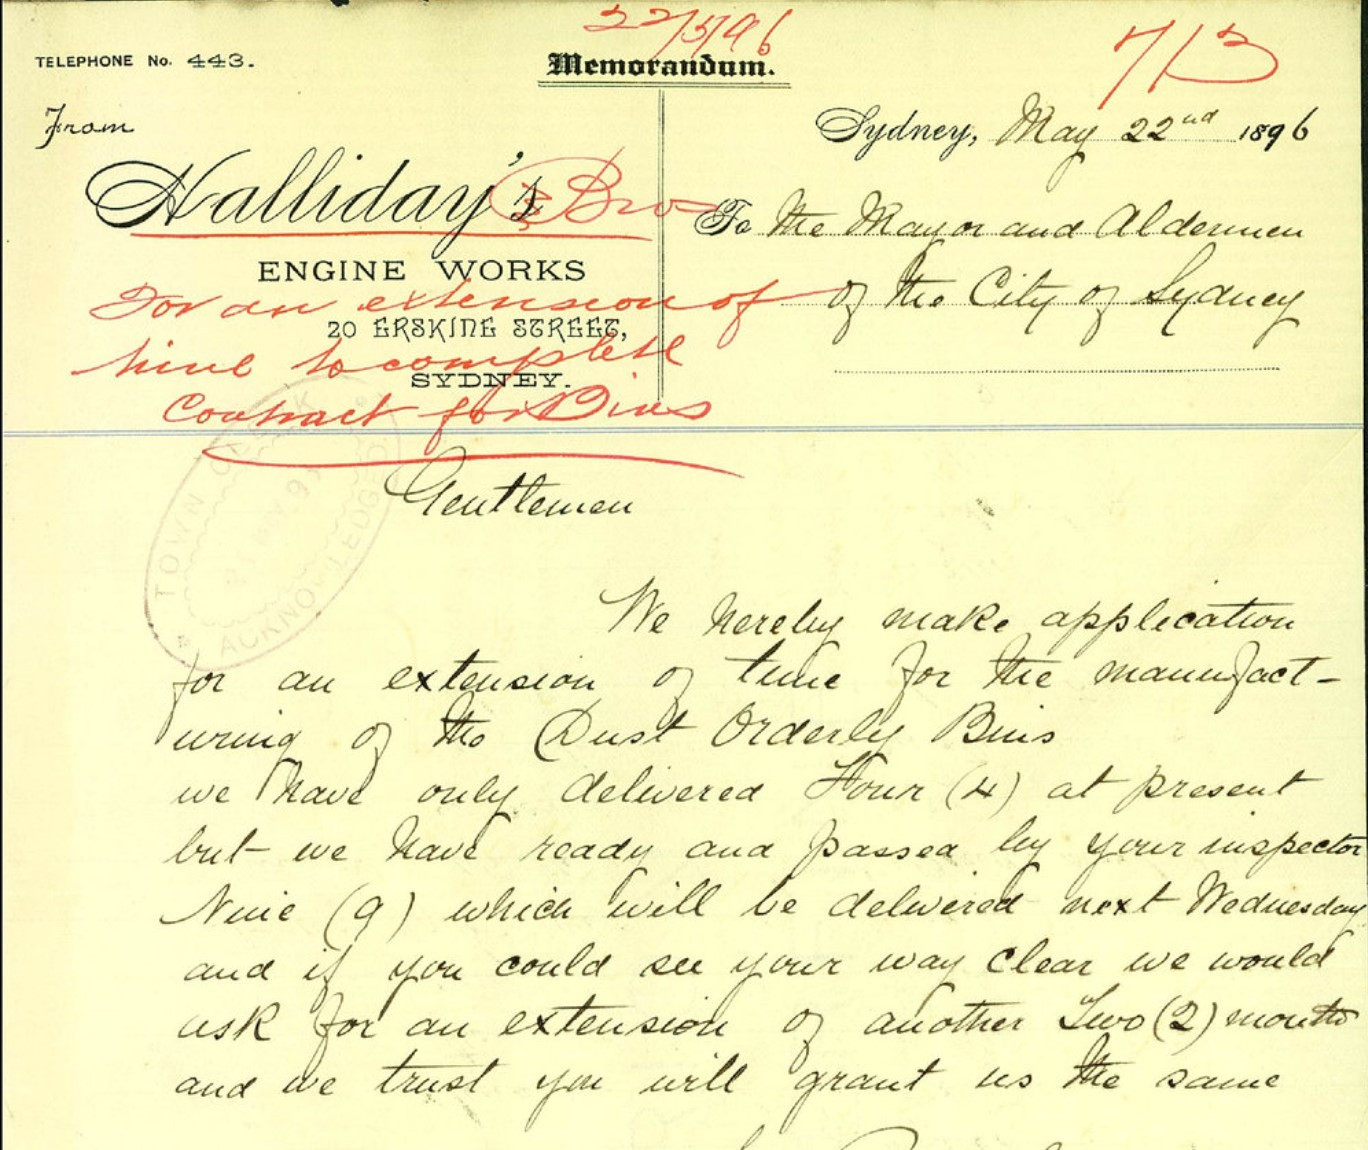 22/5/96
713
TELEPHONE No. 443.
Memorandum.
From
Sydney, May 22nd 1896
Halliday's Bros
To The Mayor and Aldermen
ENGINE WORKS
of the City of Sydney
20 ERSKINE STREET,
SYDNEY.
For an extension of
time to complete
Contract for Bins
TOWN CLERK
ACKNOWLEDGED
Gentlemen
We hereby make application
for an extension of time for the manufact-
uring of the Dust Orderly Bins
we have only delivered Four (4) at present
but we have ready and passed by your inspector
Nine (9) which will be delivered next Wednesday
and if you could see your way clear we would
ask for an extension of another Two (2) months
and we trust you will grant us the same